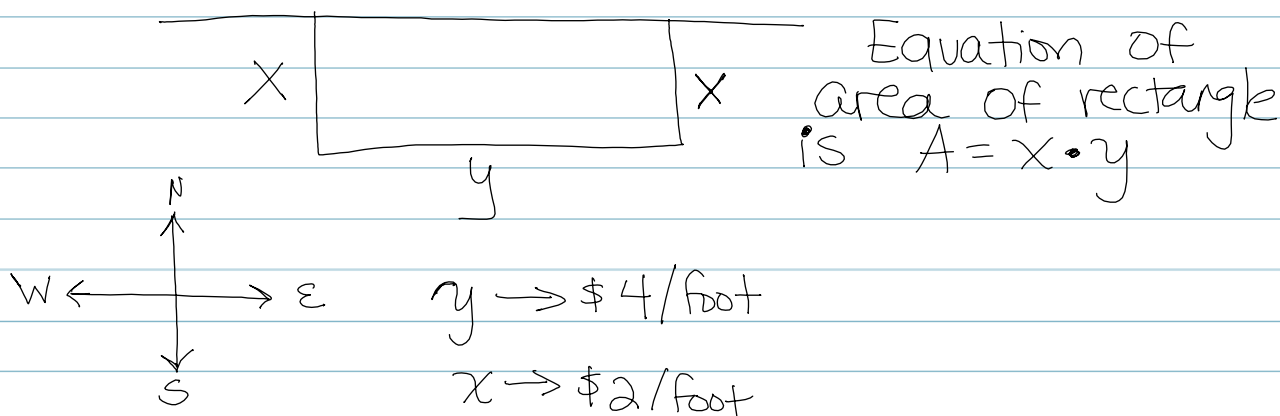 Equation of
X X area of rectangle
is A = x • y
y
N
W E y → $4/foot
S x → $2/foot